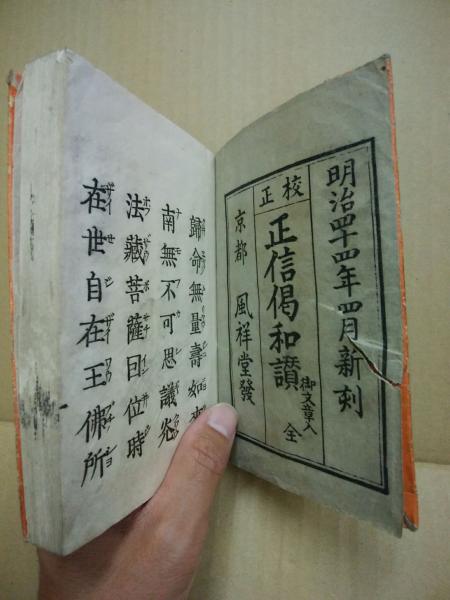 明治四十四年四月新刻
校正
正信偈和讚
御文章入
全
京都 風祥堂發
歸命無量壽如來
南無不可思議光
法藏菩薩因位時
在世自在王佛所